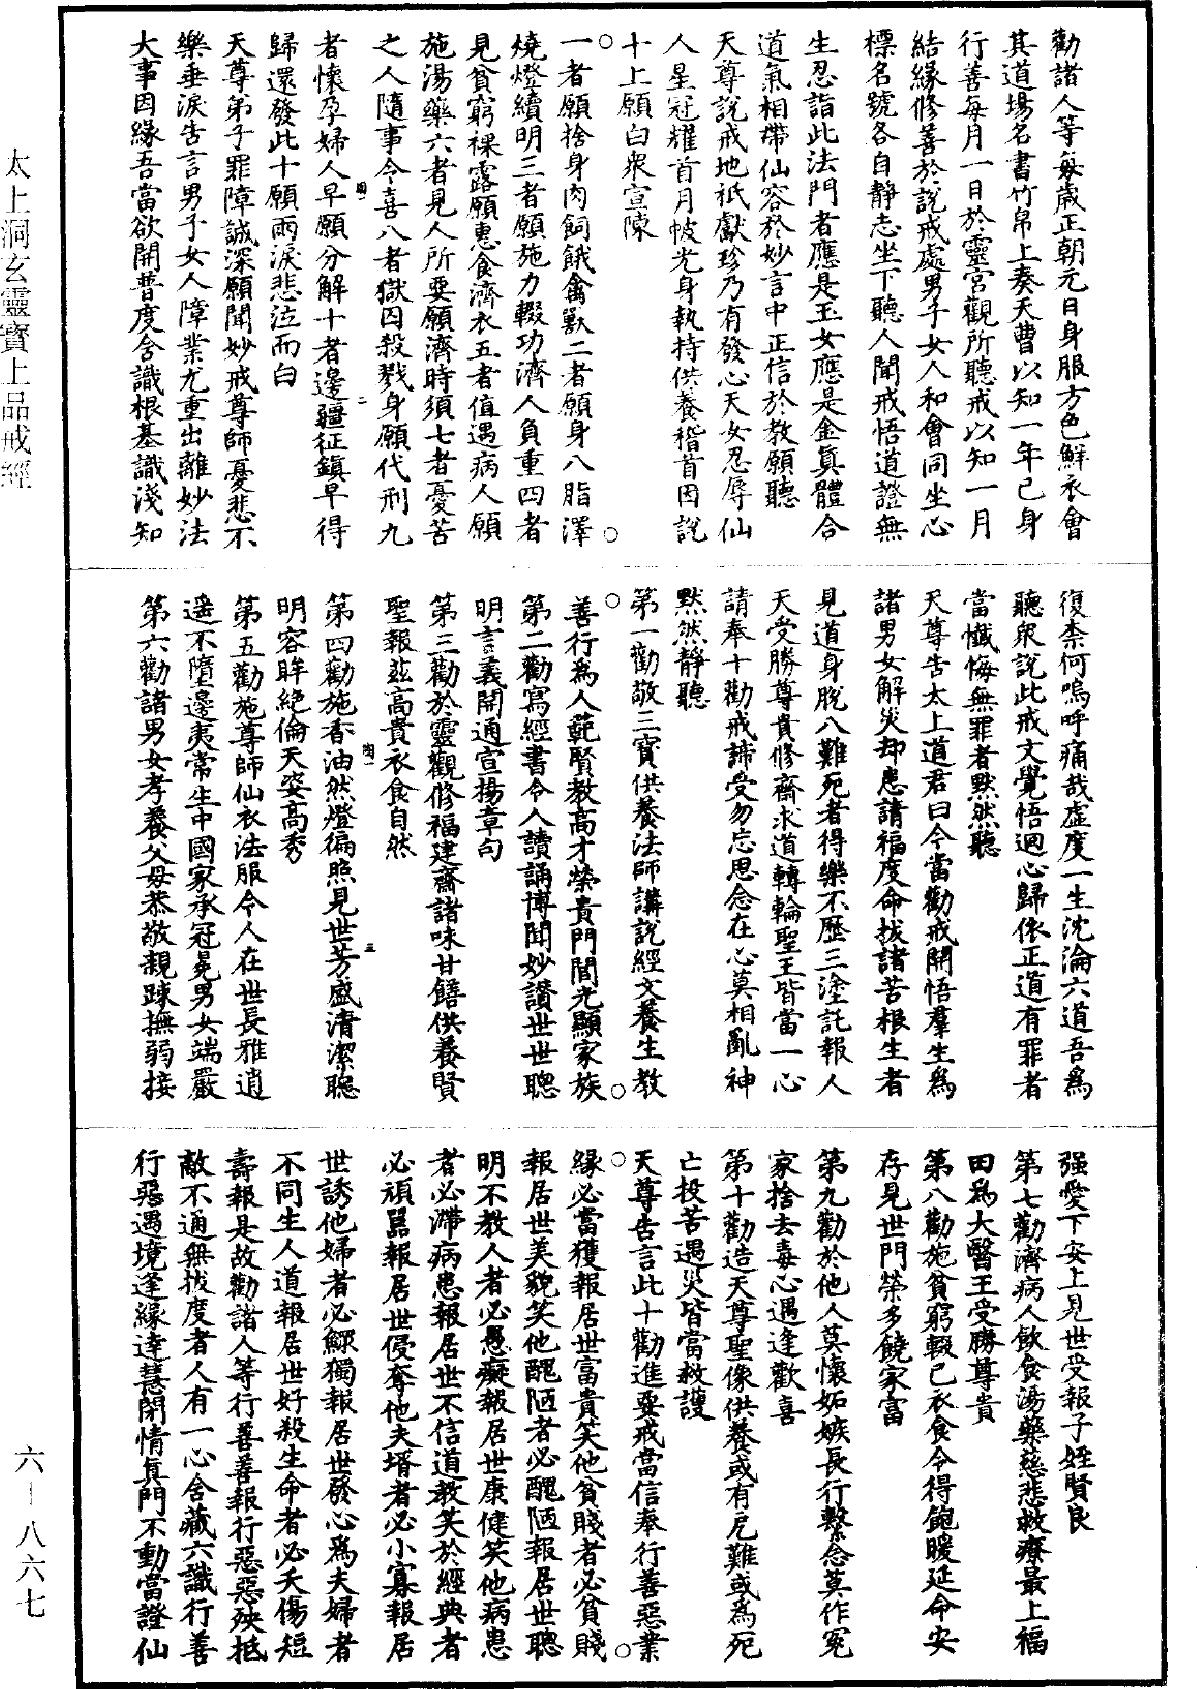 太上洞玄靈寶上品戒經
六－八六七
勸諸人等每歲正朝元日身服方色鮮衣會
其道場名書竹帛上奏天曹以知一年己身
行善每月一日於靈宮觀所聽戒以知一月
結緣修善於說戒處男子女人和會同坐心
標名號各自靜志坐下聽人聞戒悟道證無
生忍詣此法門者應是玉女應是金真體合
道氣相帶仙容於妙言中正信於教願聽
天尊說戒地祇獻珍乃有發心天女忍辱仙
人星冠耀首月帔光身執持供養稽首因說
十上願白眾宣陳
一者願捨身肉飼餓禽獸二者願身八脂澤
燒燈續明三者願施力輟功濟人負重四者
見貧窮裸露願惠食濟衣五者值遇病人願
施湯藥六者見人所要願濟時須七者憂苦
之人隨事令喜八者獄囚殺戮身願代刑九
者懷孕婦人早願分解十者邊疆征鎮早得
歸還發此十願雨淚悲泣而白
天尊弟子罪障誠深願聞妙戒尊師憂悲不
樂垂淚告言男子女人障業尤重出離妙法
大事因緣吾當欲開普度含識根基識淺知
復柰何嗚呼痛哉虛度一生沈淪六道吾為
聽眾說此戒文覺悟迴心歸依正道有罪者
當懺悔無罪者默然聽
天尊告太上道君曰今當勸戒開悟羣生為
諸男女解災却患請福度命拔諸苦根生者
見道身脫八難死者得樂不歷三塗託報人
天受勝尊貴修齋求道轉輪聖王皆當一心
請奉十勸戒諦受勿忘思念在心莫相亂神
默然靜聽
第一勸敬三寶供養法師講說經文養生教
善行為人範賢教高才榮貴門閭光顯家族
第二勸寫經書令人讀誦博聞妙讚世世聰
明言義開通宣揚章句
第三勸於靈觀修福建齋諸味甘饍供養賢
聖報茲高貴衣食自然
第四勸施香油然燈徧照見世芳盛清潔聰
明容眸絕倫天姿高秀
第五勸施尊師仙衣法服令人在世長雅逍
遥不墮邊夷常生中國家承冠冕男女端嚴
第六勸諸男女孝養父母恭敬親踈撫弱接
强愛下安上見世受報子姪賢良
第七勸濟病人飲食湯藥慈悲救療最上福
田為大醫王受勝尊貴
第八勸施貧窮輟己衣食令得飽暖延命安
存見世門榮多饒家富
第九勸於他人莫懷妬嫉長行繫念莫作冤
家捨去毒心遇逢歡喜
第十勸造天尊聖像供養或有厄難或為死
亡投苦遇災皆當救護
天尊告言此十勸進要戒當信奉行善惡業
緣必當獲報居世富貴笑他貧賤者必貧賤
報居世美貌笑他醜陋者必醜陋報居世聰
明不教人者必愚癡報居世康健笑他病患
者必滯病患報居世不信道教笑於經典者
必頑嚚報居世侵奪他夫壻者必小寡報居
世誘他婦者必鰥獨報居世發心為夫婦者
不同生人道報居世好殺生命者必夭傷短
壽報是故勸諸人等行善善報行惡惡殃抵
敵不通無拔度者人有一心含藏六識行善
行惡遇境逢緣達慧閉情真門不動當證仙